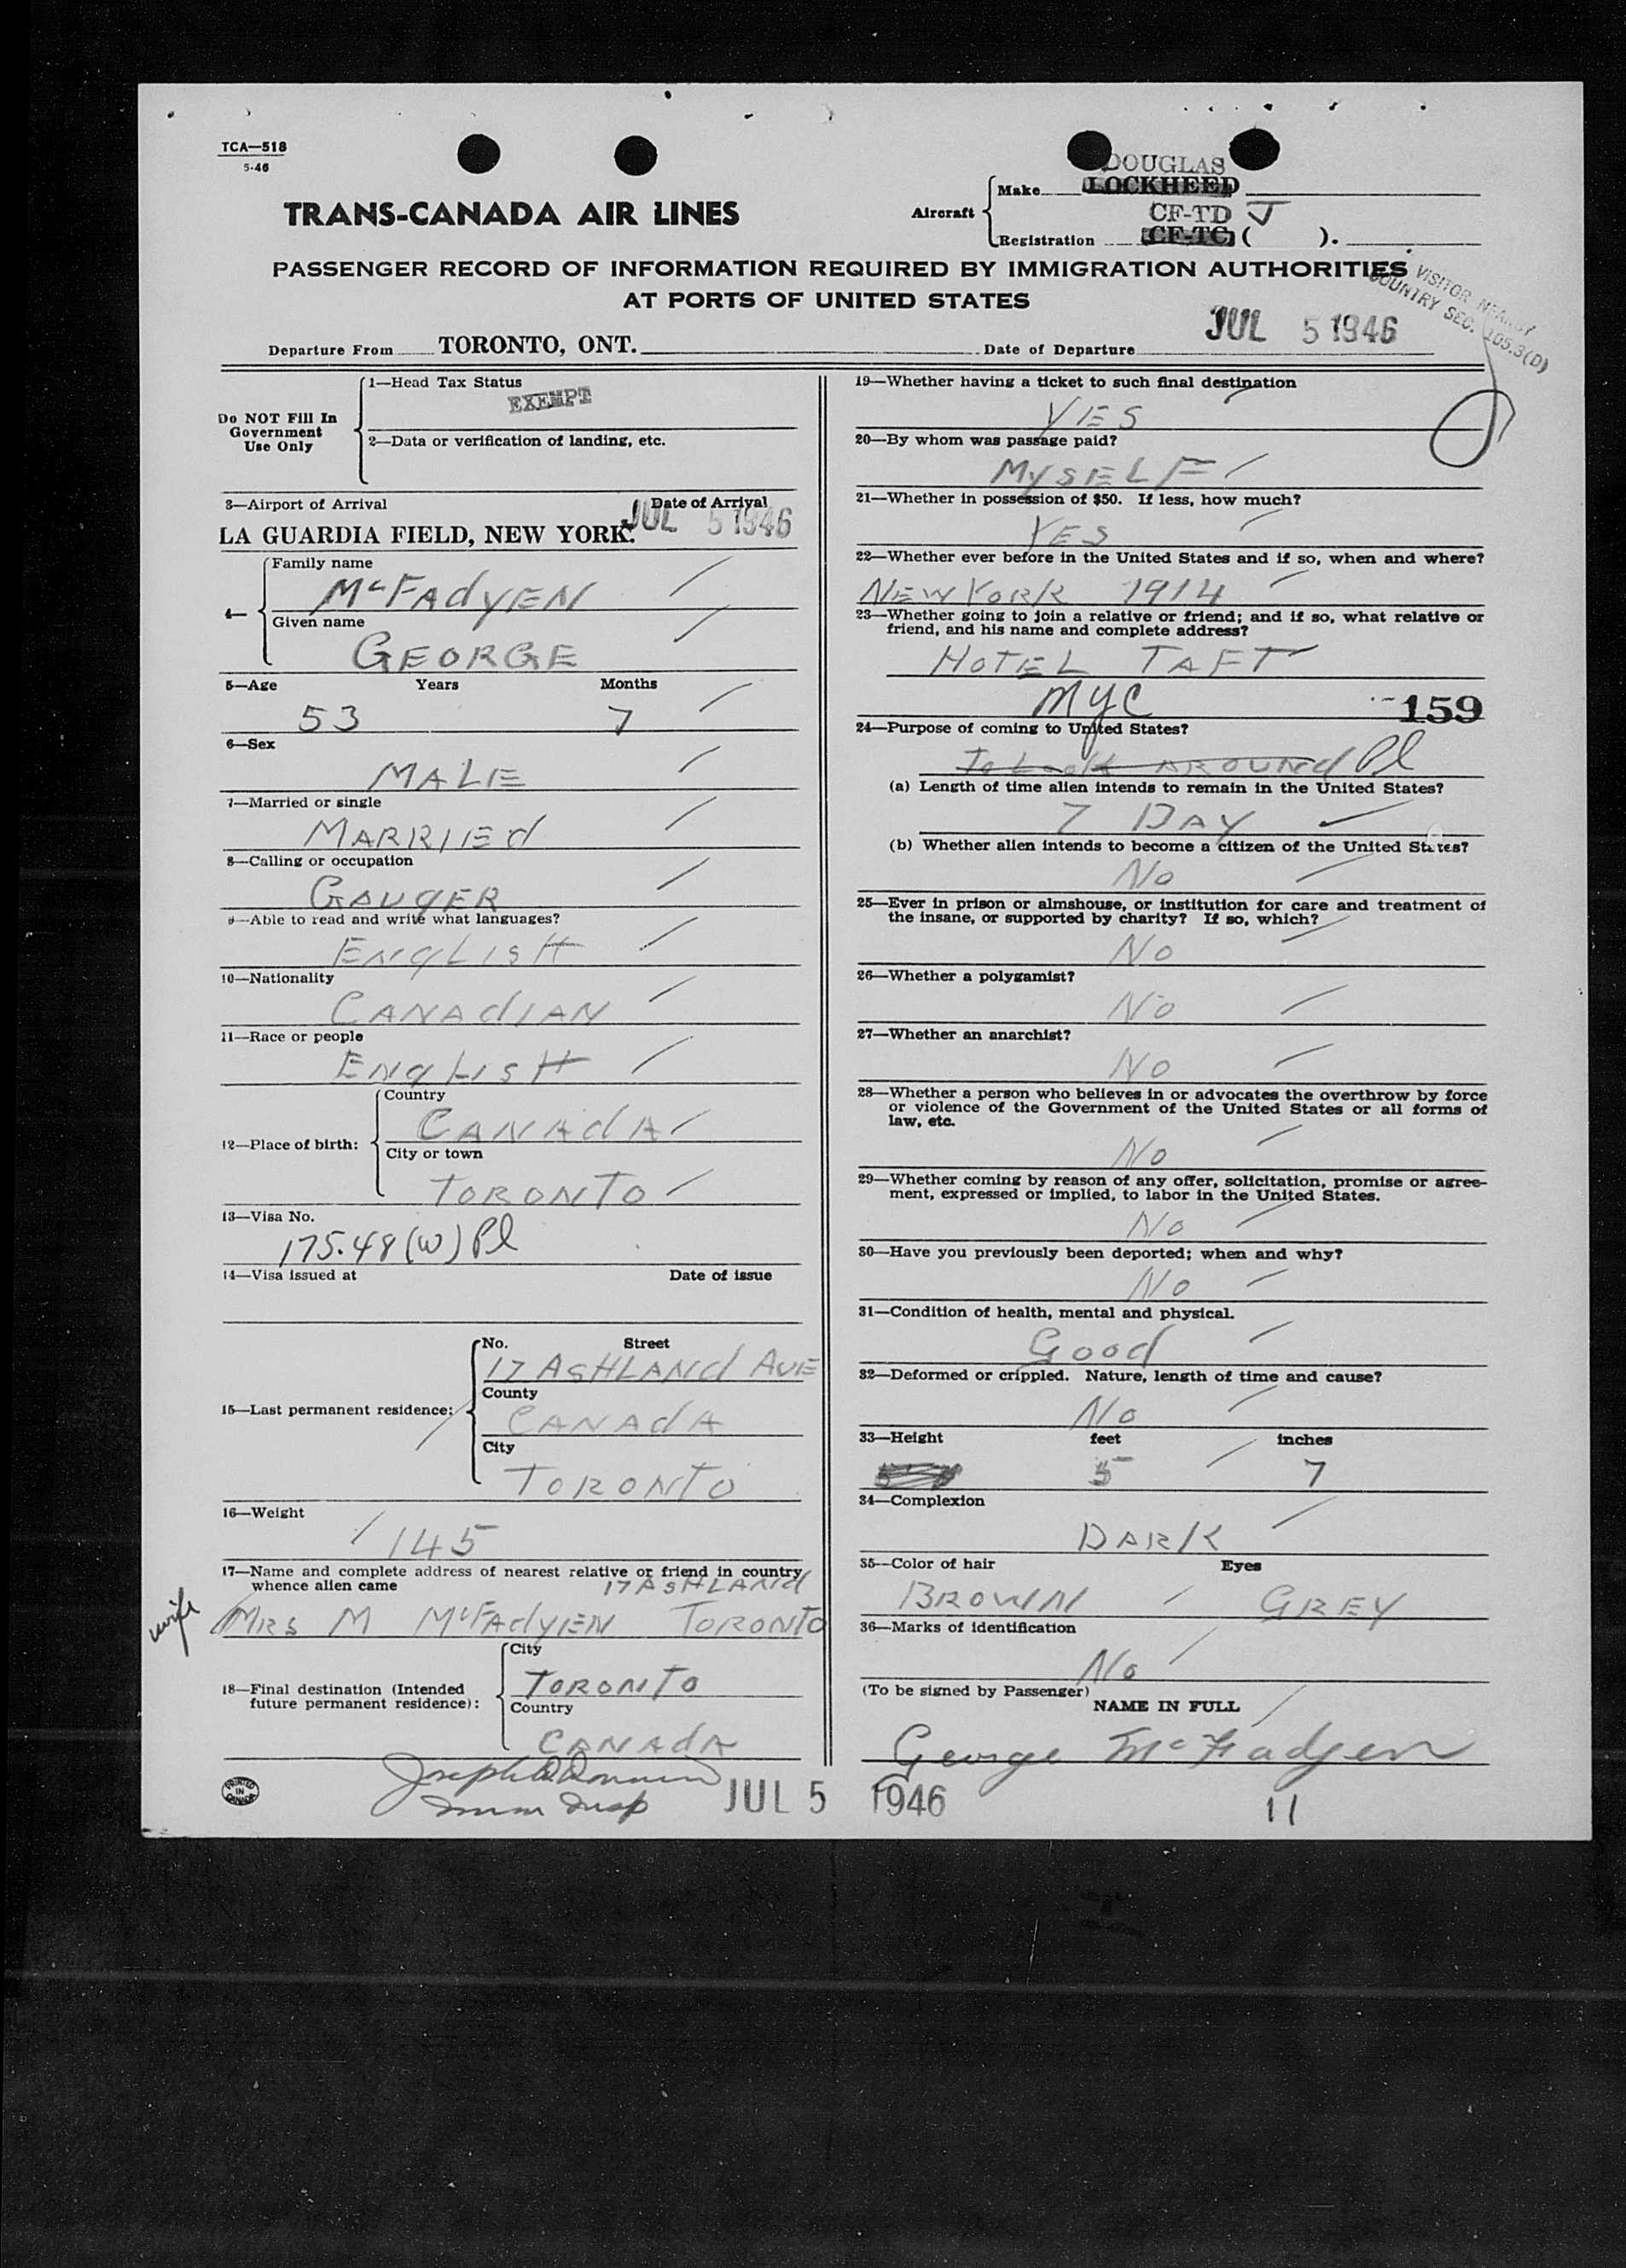 TCA—518
5-46
DOUGLAS
Make LOCKHEED
TRANS-CANADA AIR LINES
Aircraft
CF-TD J
Registration CF-TC ( ).
PASSENGER RECORD OF INFORMATION REQUIRED BY IMMIGRATION AUTHORITIES
AT PORTS OF UNITED STATES
VISITOR NEARBY
COUNTRY SEC. 105.3(D)
Departure From TORONTO, ONT. Date of Departure JUL 5 1946
Do NOT Fill In
Government
Use Only
1—Head Tax Status
EXEMPT
2—Data or verification of landing, etc.
3—Airport of Arrival Date of Arrival
LA GUARDIA FIELD, NEW YORK. JUL 5 1946
4—
Family name
McFAdyEN
Given name
GEORGE
5—Age Years Months
53 7
6—Sex
MALE
7—Married or single
MARRIEd
8—Calling or occupation
GAUGER
9—Able to read and write what languages?
ENgLISH
10—Nationality
CANAdIAN
11—Race or people
ENgLISH
12—Place of birth:
Country
CANAdA
City or town
TORONTO
13—Visa No.
175.48 (W) Pl
14—Visa issued at Date of issue
15—Last permanent residence:
No. Street
17 ASHLANd AVE
County
CANAdA
City
TORONTO
16—Weight
145
17—Name and complete address of nearest relative or friend in country
whence alien came 17 ASHLANd
wife MRS M McFAdyEN TORONTO
18—Final destination (Intended
future permanent residence):
City
TORONTO
Country
CANAdA
PRINTED
IN
CANADA
19—Whether having a ticket to such final destination
YES
20—By whom was passage paid?
MySELF
21—Whether in possession of $50. If less, how much?
YES
22—Whether ever before in the United States and if so, when and where?
NEW YORK 1914
23—Whether going to join a relative or friend; and if so, what relative or
friend, and his name and complete address?
HOTEL TAFT
NYC
159
24—Purpose of coming to United States?
To Look AROUNd Pl
(a) Length of time alien intends to remain in the United States?
7 DAY
(b) Whether alien intends to become a citizen of the United States?
No
25—Ever in prison or almshouse, or institution for care and treatment of
the insane, or supported by charity? If so, which?
No
26—Whether a polygamist?
No
27—Whether an anarchist?
No
28—Whether a person who believes in or advocates the overthrow by force
or violence of the Government of the United States or all forms of
law, etc.
No
29—Whether coming by reason of any offer, solicitation, promise or agree-
ment, expressed or implied, to labor in the United States.
No
30—Have you previously been deported; when and why?
No
31—Condition of health, mental and physical.
Good
32—Deformed or crippled. Nature, length of time and cause?
No
33—Height feet inches
5 7
34—Complexion
DARK
35—Color of hair Eyes
BROWN GREY
36—Marks of identification
No
(To be signed by Passenger)
NAME IN FULL
George McFadyen
Joseph
Imm Insp JUL 5 1946
11